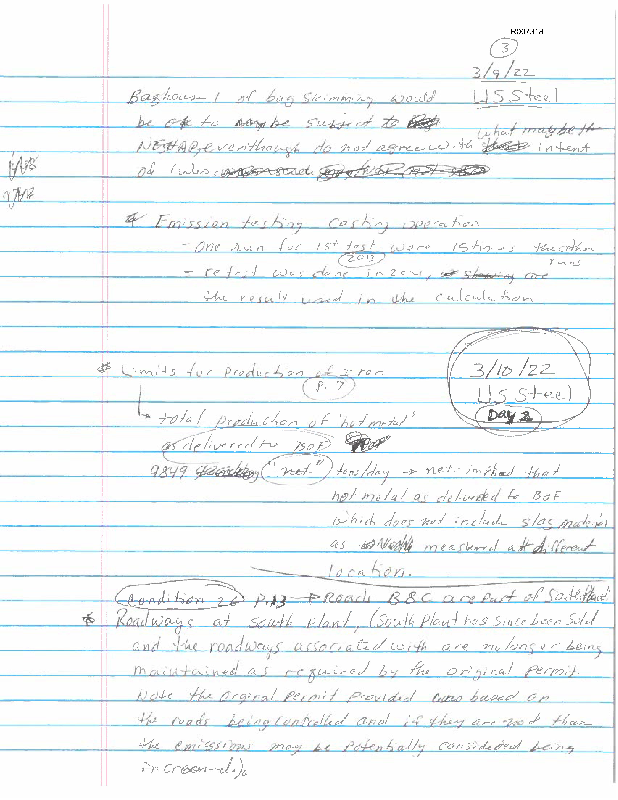 3
3/9/22
U.S. Steel
Baghouse 1 of bag skimming would
be to maybe subject to
NESHAP, eventhough do not agree with what maybe the intent
of rules.
* Emission testing - Casting operation
- one run for 1st test were 15 times the other runs
2013
- retest was done in , are
the result used in the calculation
* Limits for production of Iron
p. 7
3/10/22
U.S. Steel
Day 2
total production of "hot metal"
as delivered to BOF
9849 "net" tons/day → net- instead that
hot metal as delivered to BOF
which does not include slag material
as measured at different
location.
Condition 26 p.13 → Roads B&C are part of South Plant
* Roadways at South Plant, (South Plant has since been sold
and the roadways associated with are no longer being
maintained as required by the original permit.
Note the orginal permit provided based on
the roads being controlled and if they are not than
the emissions may be potentially considered being